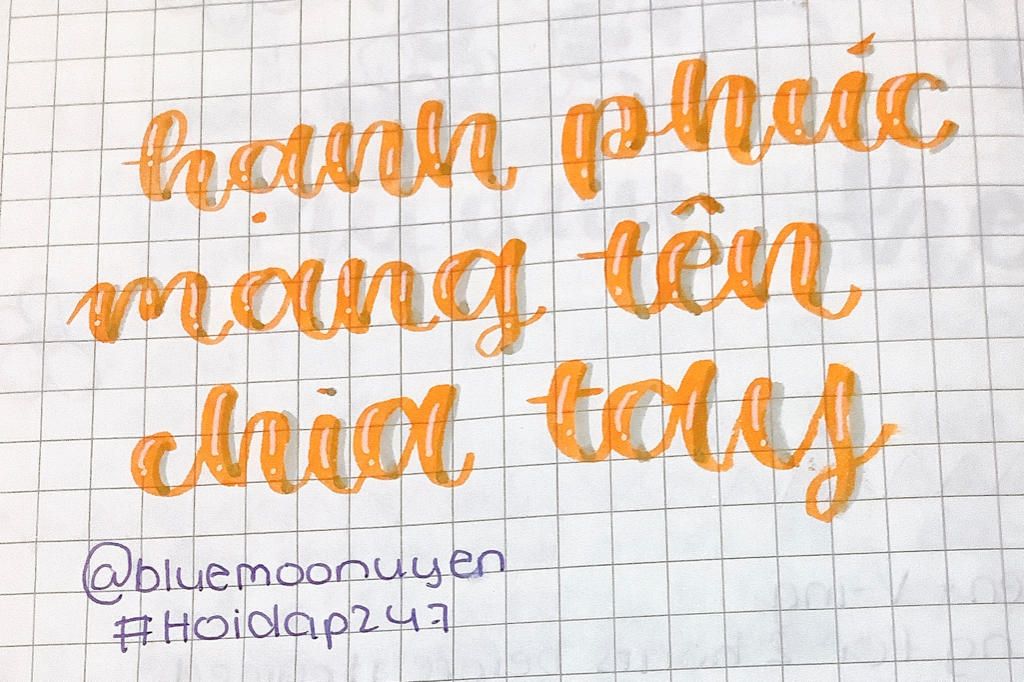 hạnh phúc
mang tên
chia tay
@bluemoonuyen
#Hoidap247